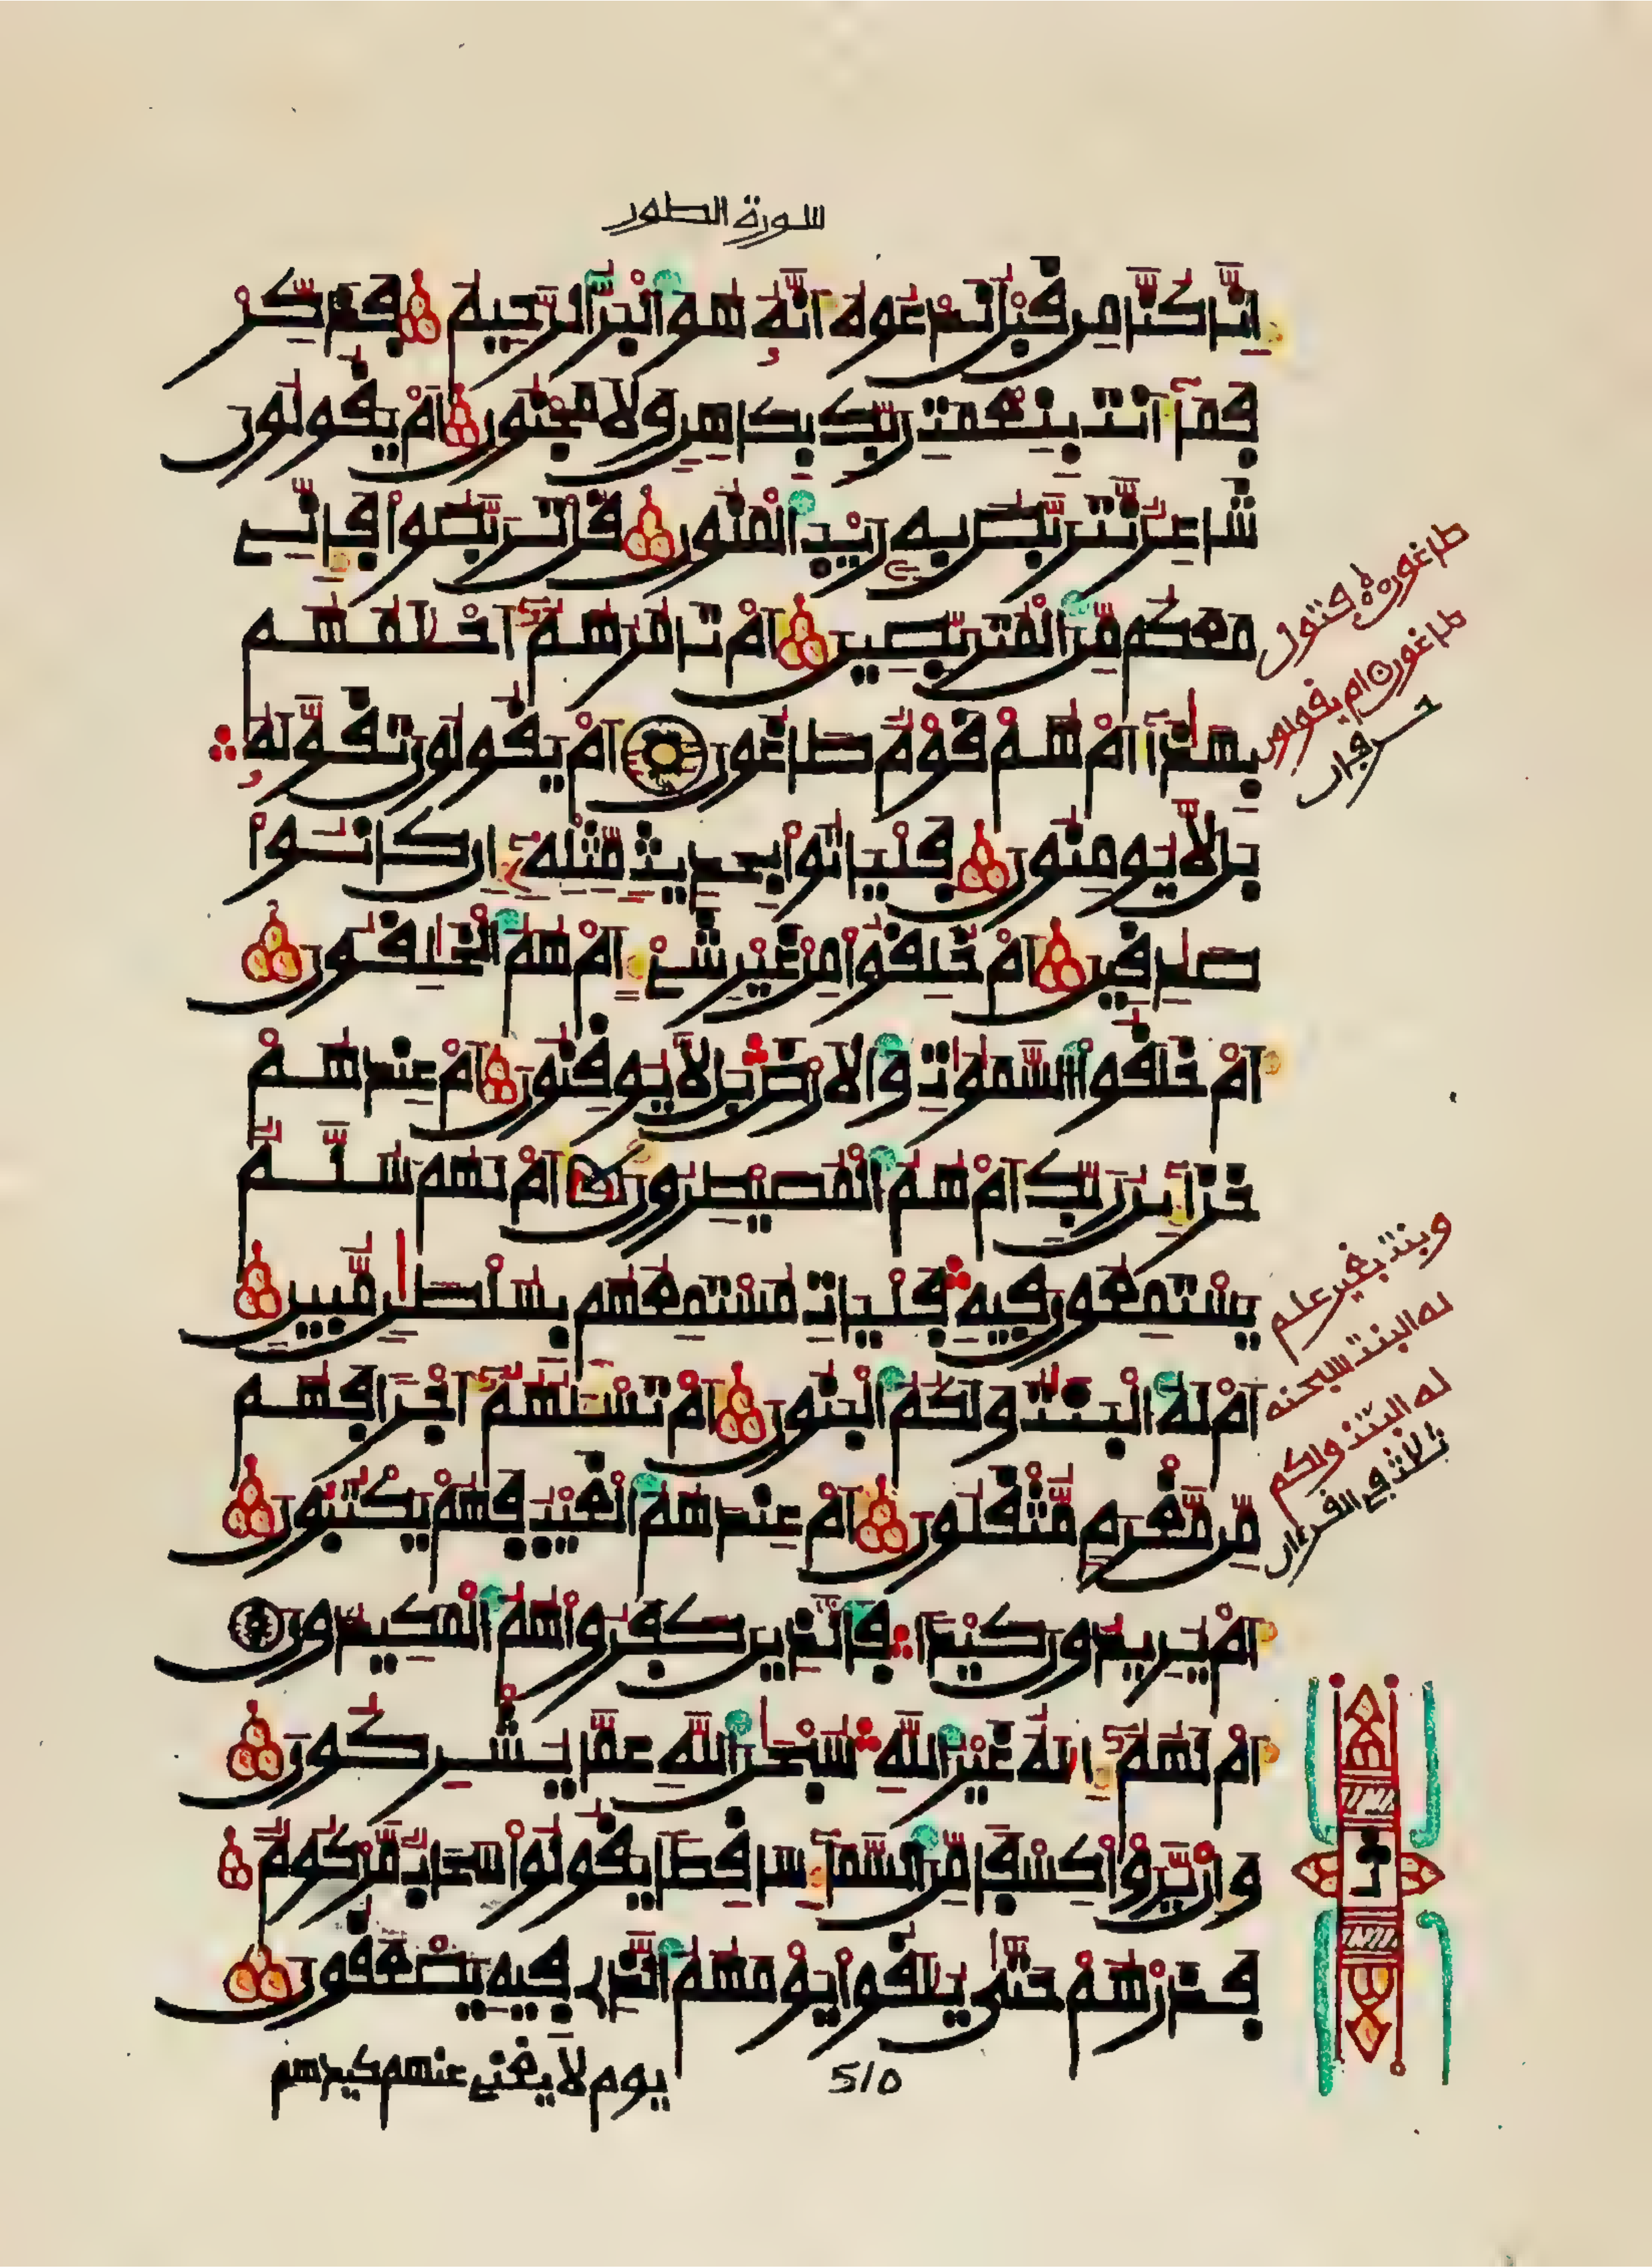 سورة الطور
إِنَّا كُنَّا مِن قَبْلُ نَدْعُوهُ أَنَّهُ هُوَ اَلْبَرُّ اَلرَّحِيمُ فَذَكِّرْ
فَمَآ أَنتَ بِنِعْمَتِ رَبِّكَ بِكَاهِنٍ وَلَا مَجْنُونٍ أَمْ يَقُولُونَ
شَاعِرٌ نَّتَرَبَّصُ بِهِ رَيْبَ اَلْمَنُونِ قُلْ تَرَبَّصُوا فَإِنِّي
مَعَكُم مِّنَ اَلْمُتَرَبِّصِينَ أَمْ تَامُرُهُمُ أَحْلَمُهُم
بِهَذَآ أَمْ هُمْ قَوْمٌ طَاغُونَ أَمْ يَقُولُونَ تَقَوَّلَهُ
بَل لَّا يُومِنُونَ فَلْيَاتُوا بِحَدِيثٍ مِّثْلِهِ إِن كَانُوا
صَدِقِينَ أَمْ خُلِقُوا مِنْ غَيْرِ شَيْءٍ أَمْ هُمُ اَلْخَلِقُونَ
أَمْ خَلَقُوا اَلسَّمَوَتِ وَالَارْضَ بَل لَّا يُوقِنُونَ أَمْ عِندَهُمْ
خَزَآئِنُ رَبِّكَ أَمْ هُمُ اَلْمُصَيْطِرُونَ أَمْ لَهُمْ سُلَّمٌ
يَسْتَمِعُونَ فِيهِ فَلْيَاتِ مُسْتَمِعُهُم بِسُلْطَنٍ مُّبِينٍ
أَمْ لَهُ اَلْبَنَتُ وَلَكُمُ اَلْبَنُونَ أَمْ تَسْـَٔلُهُمُ أَجْرًا فَهُم
مِّن مَّغْرَمٍ مُّثْقَلُونَ أَمْ عِندَهُمُ اَلْغَيْبُ فَهُمْ يَكْتُبُونَ
أَمْ يُرِيدُونَ كَيْدًا فَالَّذِينَ كَفَرُوا هُمُ اَلْمَكِيدُونَ
أَمْ لَهُمُ إِلَهٌ غَيْرُ اُللَّهِ سُبْحَنَ اَللَّهِ عَمَّا يُشْرِكُونَ
وَإِنْ يَّرَوْا كِسْفًا مِّنَ اَلسَّمَآءِ سَاقِطًا يَقُولُوا سَحَابٌ مَّرْكُومٌ
فَذَرْهُمْ حَتَّى يُلَقُوا يَوْمَهُمُ اُلَّذِي فِيهِ يَصْعَقُونَ
يوم لا يغني عنهم كيدهم
510
طاغون فتول
طاغون ام يقولون
حرفان
وبنت بغير علم
له البنت سبحنه
له البنت ولكم
ثلاث في القرءان